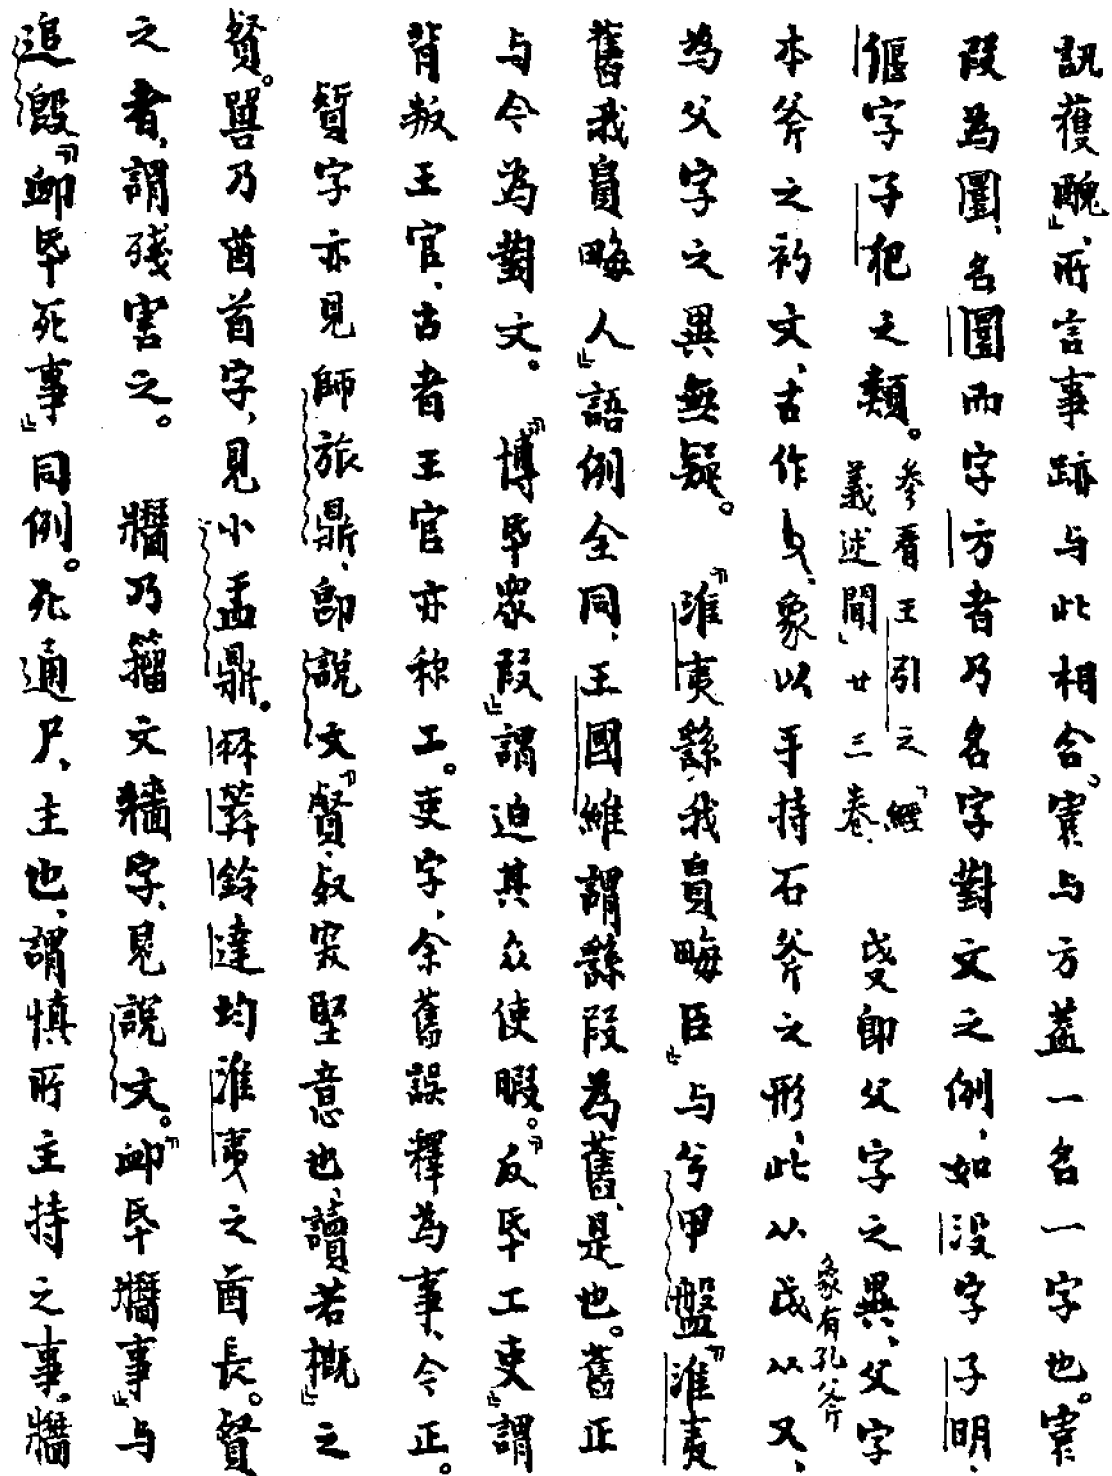 訊蒦醜」，所言事跡与此相合。䨓与方蓋一名一字也。䨓
叚為圛，名圛而字方者乃名字對文之例，如没字子明，
偃字子犯之類。參看王引之「經義述聞」廿三卷。 㦰即父字之異，父字
本斧之初文，古作，象以手持石斧之形，此从戉象有孔斧从又，
為父字之異無疑。 「淮夷繇我員畮臣」与兮甲盤「淮夷
舊我員畮人」語例全同，王國維謂繇叚為舊，是也。舊正
与今為對文。 「博厥眾叚」謂迫其众使暇。「反厥工吏」謂
背叛王官，古者王官亦称工。吏字，余舊誤釋為事，今正。
字亦見師旅鼎，即說文「叡，奴突堅意也，讀若概」之
叡。嘼乃酋首字，見小盂鼎。鈴達均淮夷之酋長。叡
之者，謂殘害之。 牆乃籀文牆字，見說文。「卹厥牆事」与
追𣪘「卹厥死事」同例。死通尸，主也，謂慎所主持之事。牆